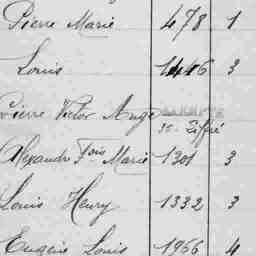 Pierre Marie 478 1
Louis 1446 3
Pierre Victor Ange
35- Ziffré
Alexandre Fois Marie 1301 3
Louis Henry 1332 3
Eugène Louis 1966 4